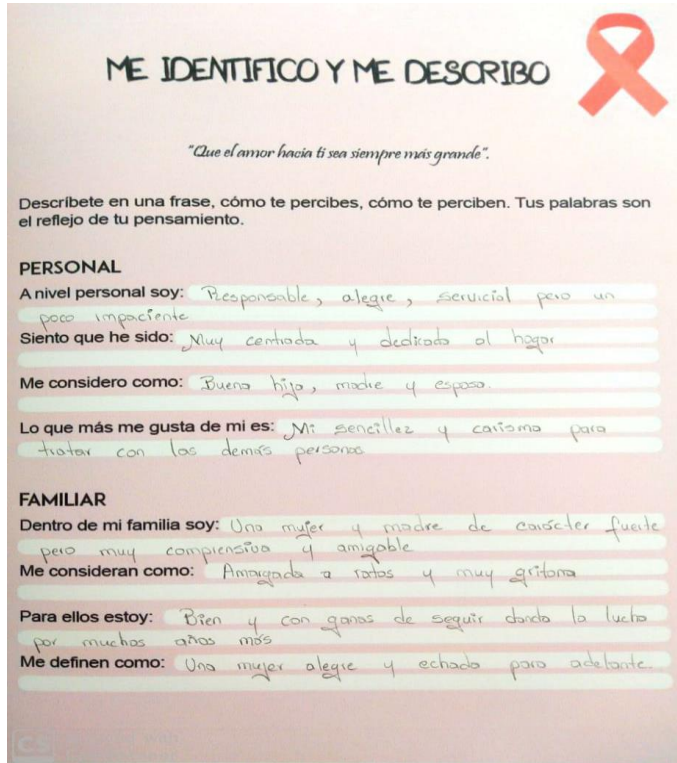 ME IDENTIFICO Y ME DESCRIBO
"Que el amor hacia ti sea siempre más grande".
Descríbete en una frase, cómo te percibes, cómo te perciben. Tus palabras son
el reflejo de tu pensamiento.
PERSONAL
A nivel personal soy: Responsable, alegre, servicial pero un
poco impaciente
Siento que he sido: Muy centrada y dedicada al hogar
Me considero como: Buena hija, madre y esposa.
Lo que más me gusta de mi es: Mi sencillez y carisma para
tratar con las demás personas
FAMILIAR
Dentro de mi familia soy: Una mujer y madre de carácter fuerte
pero muy comprensiva y amigable
Me consideran como: Amargada a ratos y muy gritona
Para ellos estoy: Bien y con ganas de seguir dando la lucha
por muchos años más
Me definen como: Una mujer alegre y echada para adelante.
CS